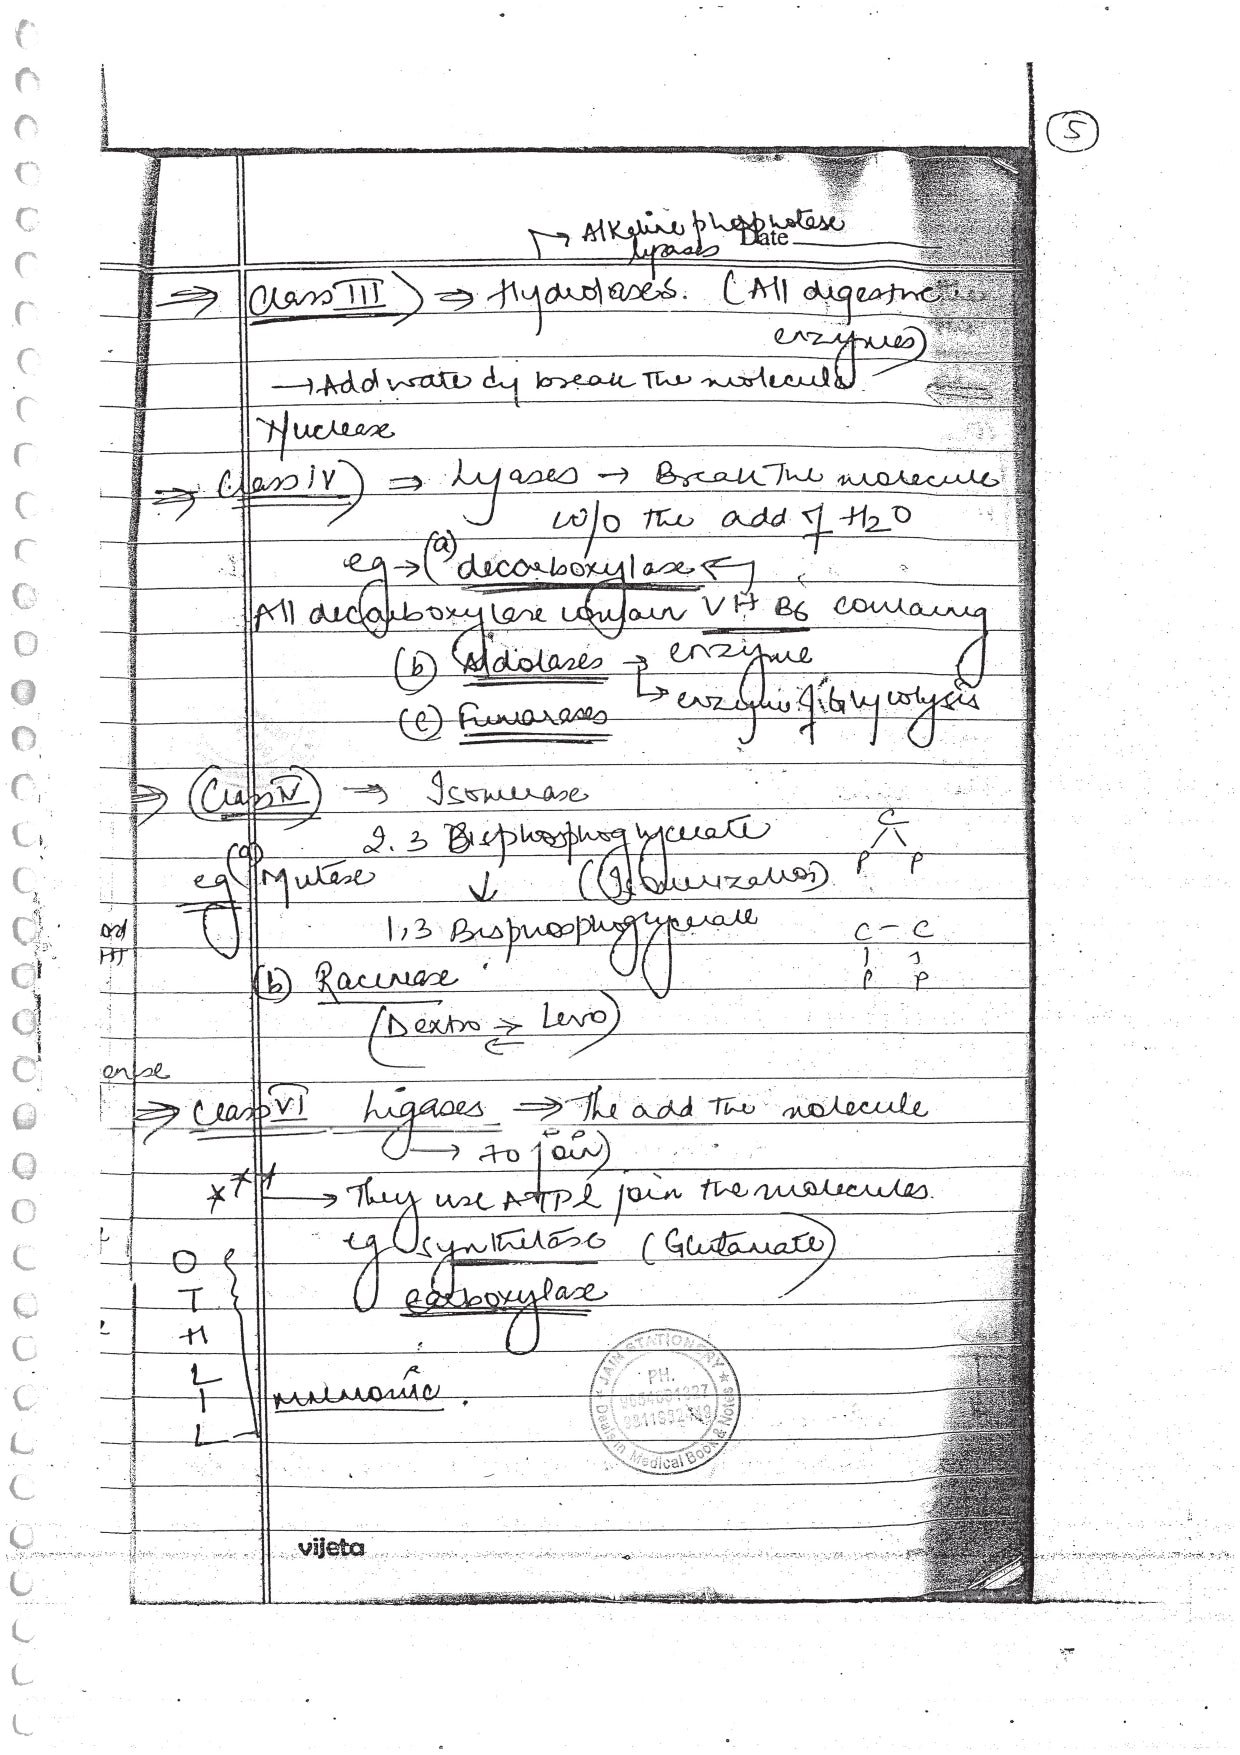 5
→ Alkaline phosphatase
lipases Date
⇒ Class III ⇒ Hydrolases. (All digestive
enzymes)
→ Add water by break the molecule
Nuclease
⇒ Class IV ⇒ Lyases → Break the molecule
w/o the add of H2O
eg → (a) decarboxylase
All decarboxylase contain Vit B6 containing
enzyme
(b) Aldolases → enzyme of Glycolysis
(c) Fumarases
⇒ Class V → Isomerase
2.3 Bisphosphoglycerate
C
P P
eg (a) Mutase ↓ (Isomerization)
1,3 Bisphosphoglycerate
C - C
P P
(b) Racemase
(Dextro ⇌ Levo)
⇒ Class VI Ligases ⇒ The add the molecule
→ to join)
*** → They use ATP & join the molecules.
eg synthetase (Glutamate)
carboxylase
O
T
H
L
I
L
mnemonic.
JAIN STATIONERY
PH.
Deals in Medical Book & Notes
vijeta